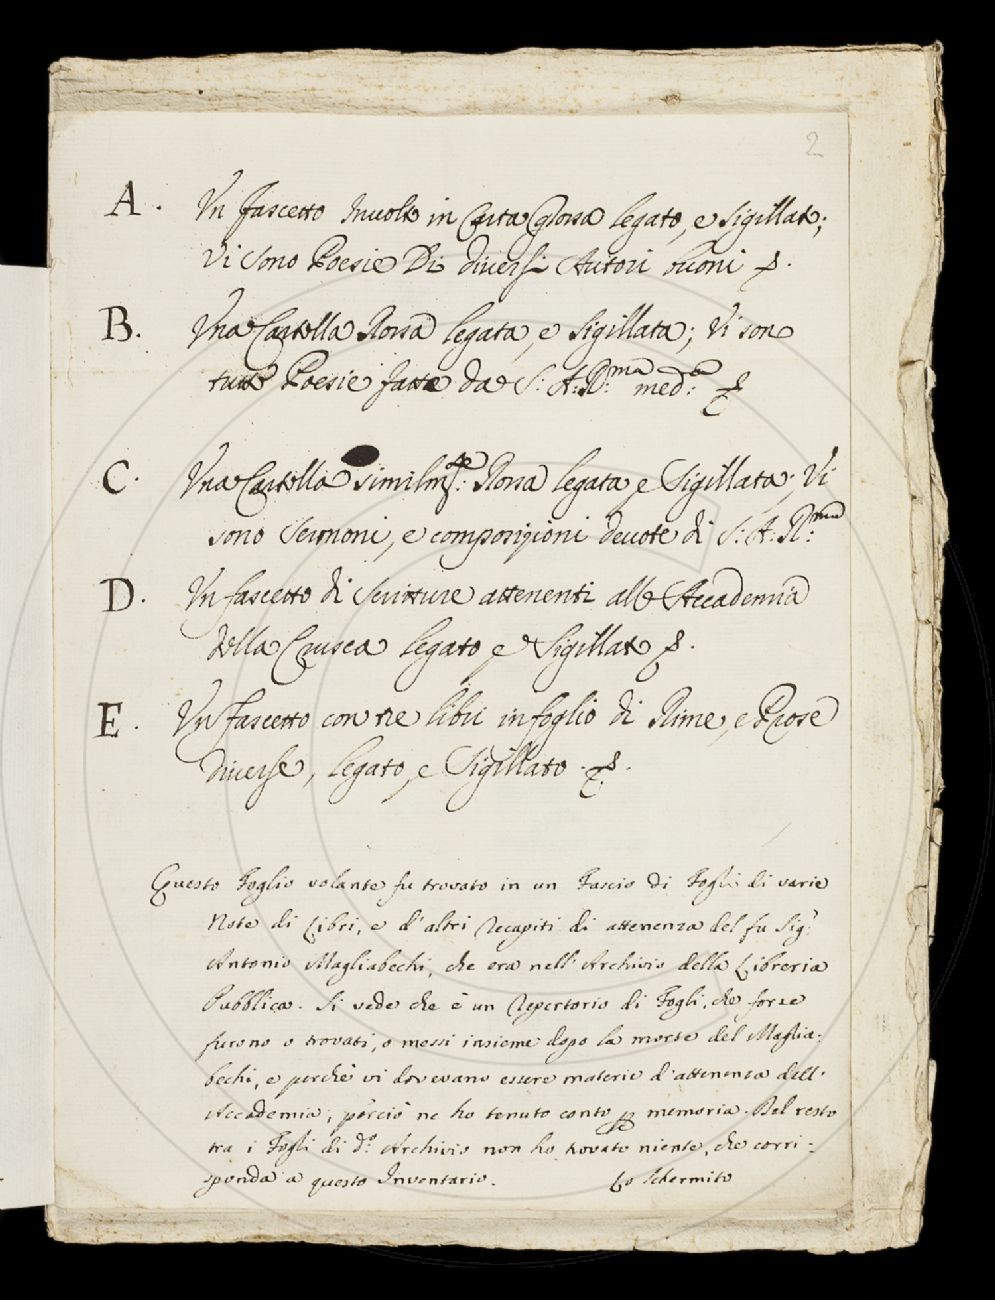 2
A. Un fascetto Inuolto in Carta Grossa legato, e Sigillato;
Vi sono Poesie Di diuersi Autori buoni
B. Una Cartella Rossa legata, e Sigillata; Vi sono
tutte Poesie fatte da S: A: R:ma med:ma
C. Una Cartella similmte: Rossa legata, e Sigillata; Vi
sono Sermoni, e composizioni deuote di S: A: R:ma
D. Un fascetto di Scritture attenenti alle Accademia
della Crusca legato, e Sigillato
E. Un fascetto con tre libri in foglio di Rime, e Prose
diuerse, legato, e Sigillato.
Questo Foglio volante fu trovato in un Fascio di Fogli di varie
Note di Libri, e d'altri Recapiti di attenenza del fu Sig.r
Antonio Magliabechi, che era nell'Archivio della Libreria
Pubblica. Si vede che è un Repertorio di Fogli, che forse
furono o trovati, o messi insieme dopo la morte del Maglia:
bechi, e perchè vi dovevano essere materie d'attenenza dell'
Accademia, perciò ne ho tenuto conto p memoria. Del resto
tra i Fogli di d.o Archivio non ho trovato niente, che corri:
sponda a questo Inventario. Lo Schermito